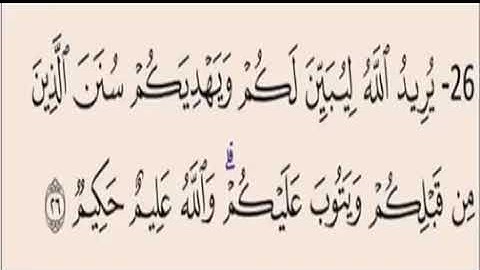 26- يُرِيدُ ٱللَّهُ لِيُبَيِّنَ لَكُمْ وَيَهْدِيَكُمْ سُنَنَ ٱلَّذِينَ
مِن قَبْلِكُمْ وَيَتُوبَ عَلَيْكُمْ ۗ وَٱللَّهُ عَلِيمٌ حَكِيمٌ ٢٦